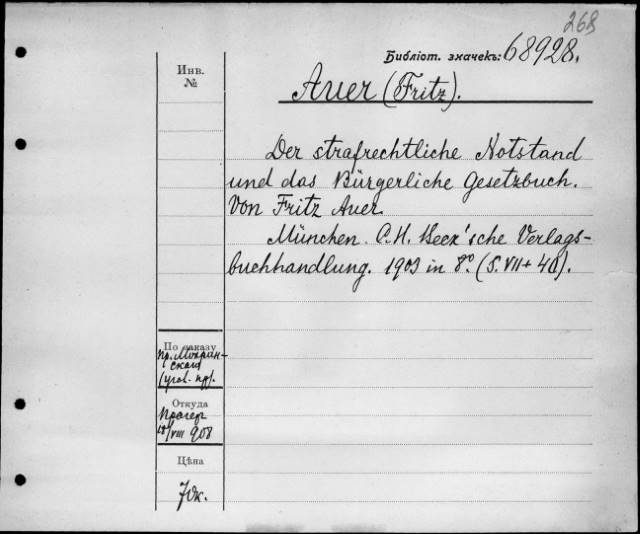 268
Библіот. значекъ: 68928.
Инв.
№
Auer (Fritz).
Der strafrechtliche Notstand
und das Bürgerliche Gesetzbuch.
Von Fritz Auer.
München. C. H. Beck'sche Verlags-
buchhandlung. 1903 in 8º. (S. VII +
По заказу
пр. Мокрин-
скаго
(угол. пр).
Откуда
Прагер
18/VIII 908
Цѣна
70к.